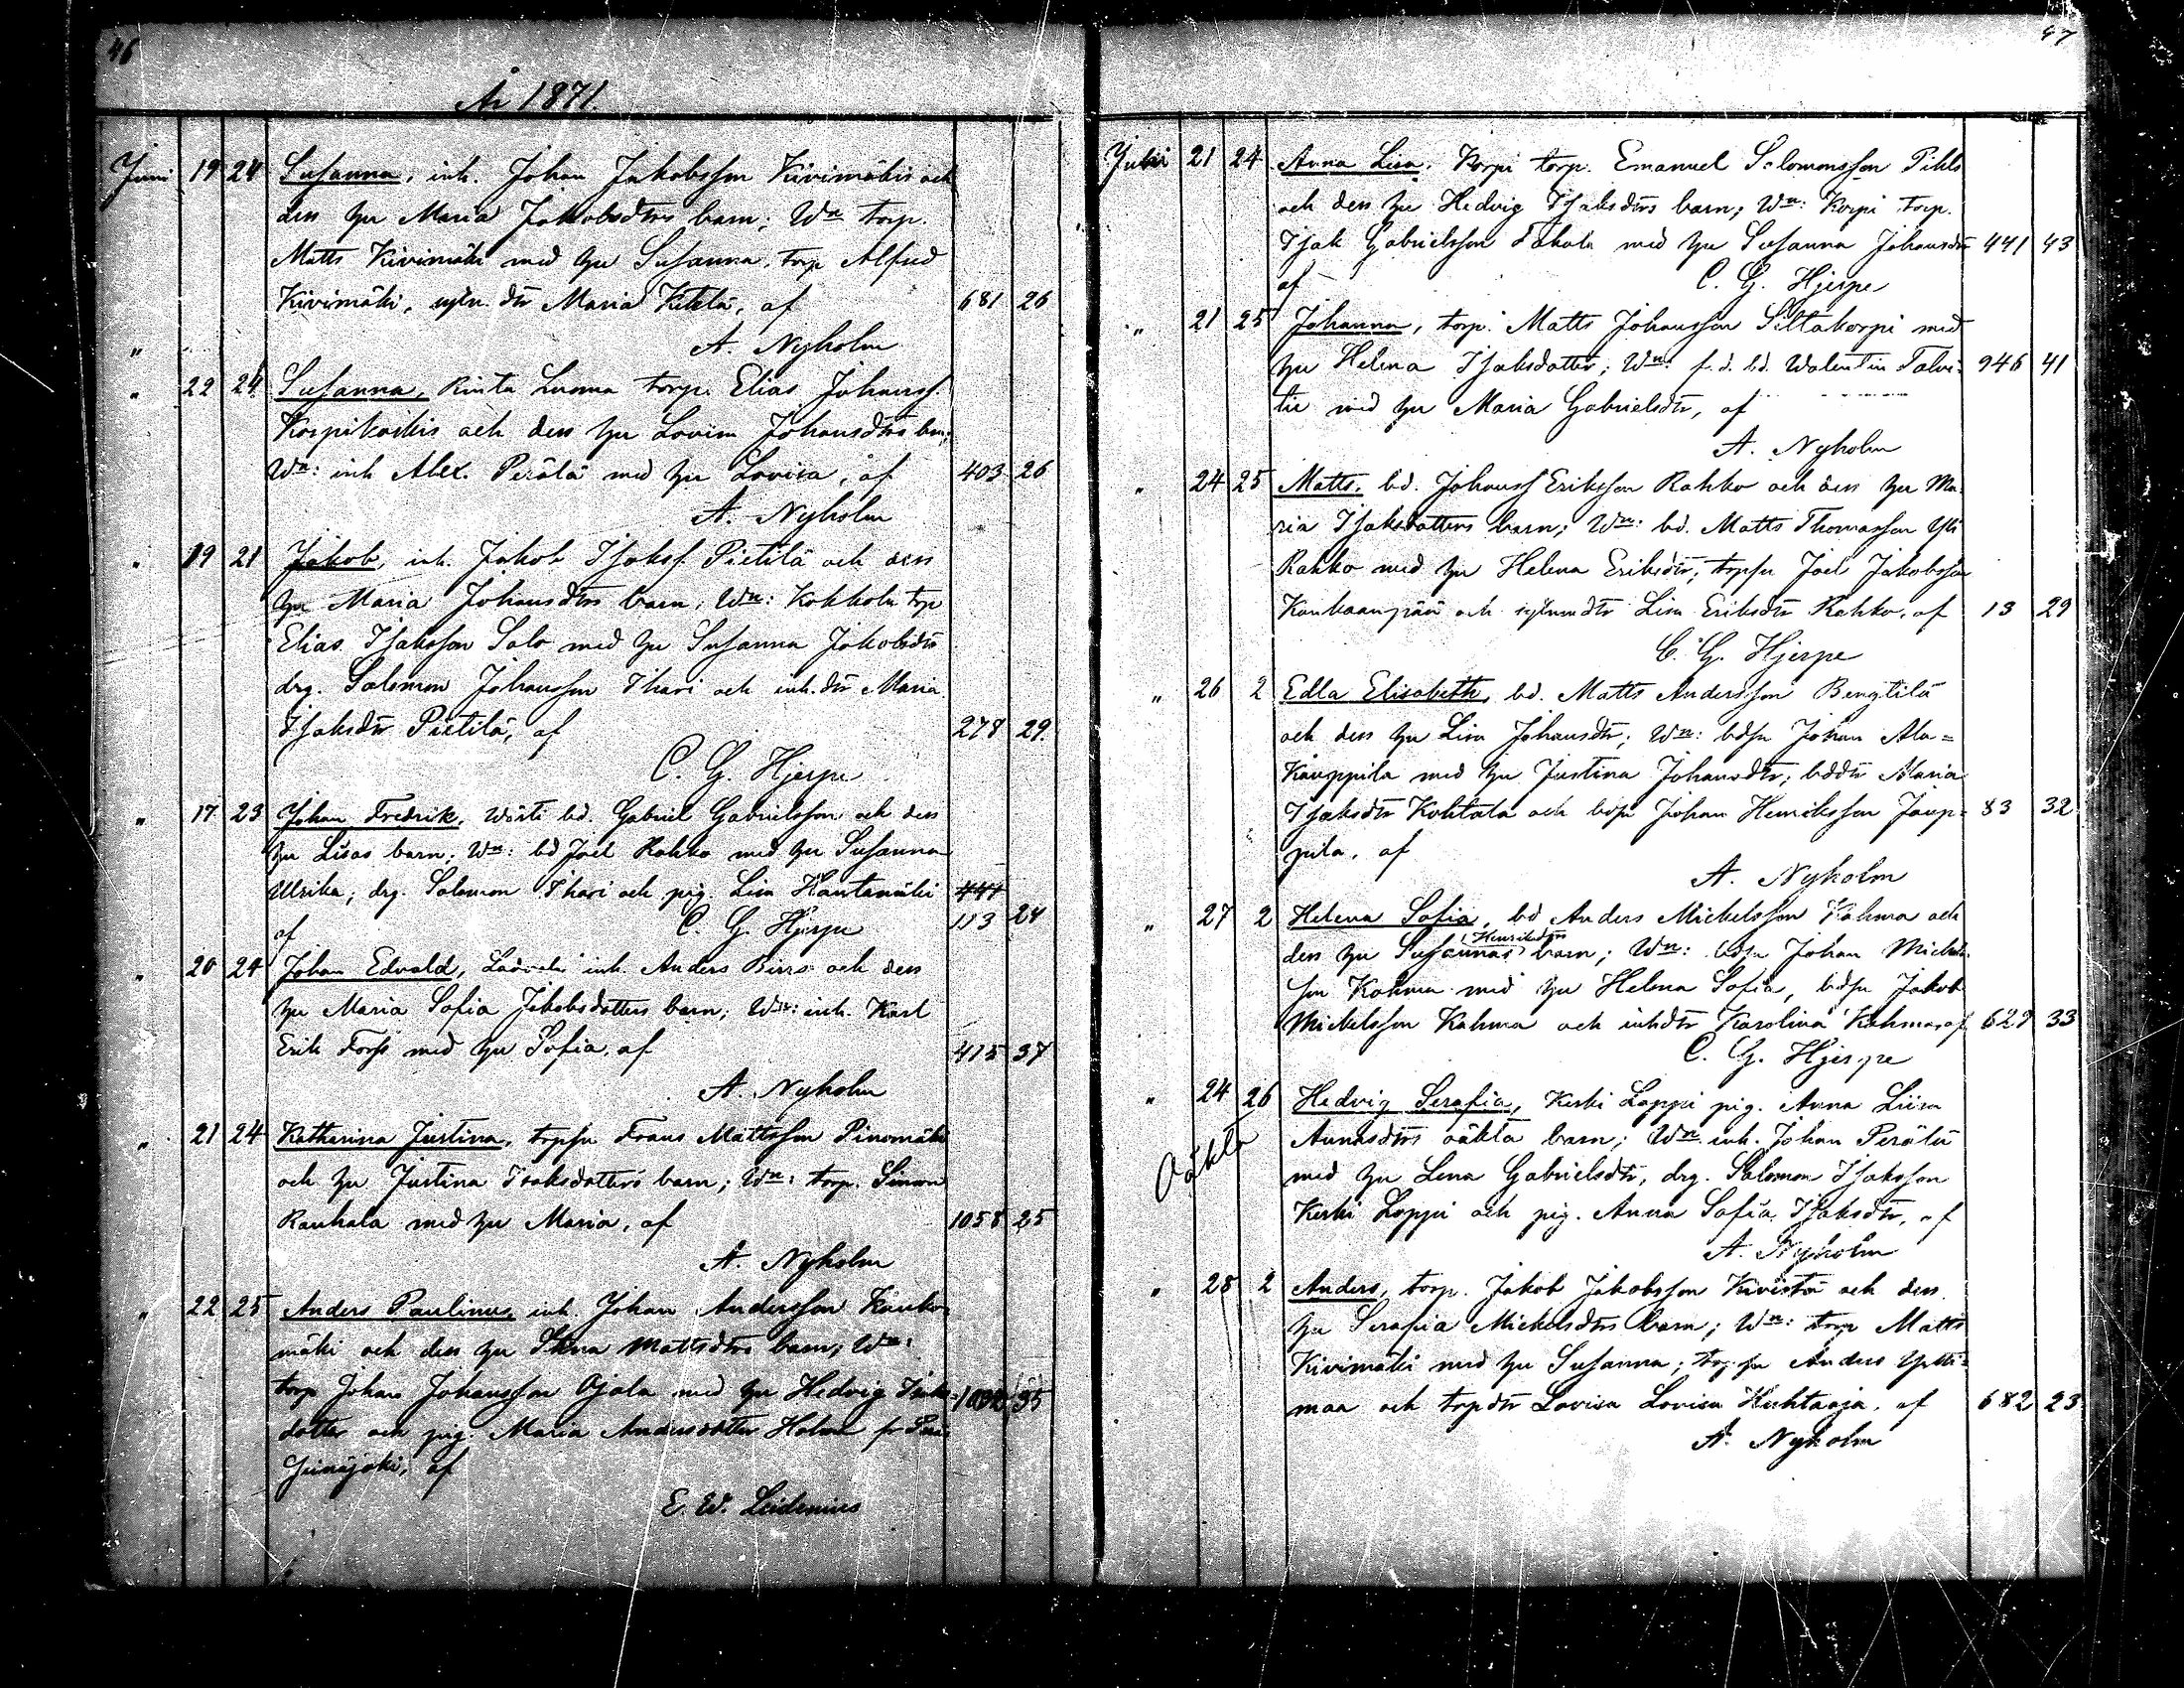 46
År 1871.
Juni 19 24 Susanna, inh. Johan Jakobsson Kivimäkis och
dess hu Maria Jakobsdtrs barn; Wn torp.
Matts Kivimäki med hu Susanna, torp Alfred
Kivimäki, sytn. dtr Maria Ketola, af 681 26
A. Nyholm
" 22 24 Susanna, Rinta Luoma torp. Elias Johanss.
Korpikoskis och dess hu Lovisa Johansdtrs barn;
Wn: inh Alex. Perälä med hu Lovisa, af 403 26
A. Nyholm
" 19 21 Jakob, inh. Jakob Isakss. Pietilä och dess
hu Maria Johansdtrs barn; Wn: Kokkola torp
Elias Isaksson Salo med hu Susanna Jakobsdtr
drg. Salomon Johansson Ihari och inh.dtr Maria
Isaksdtr Pietilä, af 278 29.
C. G. Hjerpe
" 17 23 Johan Fredrik, Wörti bd. Gabriel Gabrielsson och dess
hu Lisas barn; Wn: bd Joel Rahko med hu Susanna
Ulrika; drg. Salomon Ihari och pig. Lisa Hautamäki 441
af C. G. Hjerpe 113 24
" 20 24 Johan Edvald, inh. Anders Birros och dess
hu Maria Sofia Jakobsdotters barn; Wn: inh. Karl
Erik Forss med hu Sofia, af 415 37
A. Nyholm
" 21 24 Katharina Justina, torpsn Frans Mattsson Pinomäki
och hu Justina Isaksdotters barn; Wn: torp. Simon
Rauhala med hu Maria, af 1058 25
A. Nyholm
" 22 25 Anders Paulinus, inh. Johan Andersson Kauko
mäki och dess hu Stina Mattsdtrs barn; Wn:
torp Johan Johansson Ojala med hu Hedvig Isaks- 35
dotter och pig. Maria Andersdotter Holm fr
af
E. W. Leidenius
47
Juni 21 24 Anna Lisa, Korpi torp. Emanuel Salomonsson Pihls
och dess hu Hedvig Isaksdtrs barn; Wn: Korpi torp.
Isak Gabrielsson Takala med hu Susanna Johansdtr 441 43
af C. G. Hjerpe
" 21 25 Johanna, torp. Matts Johansson Siltakorpi med
hu Helena Isaksdotter; Wn: f.d. bd. Walentin Talvi- 946 41
tie med hu Maria Gabrielsdtr, af
A. Nyholm
" 24 25 Matts, bd. Johans Eriksson Rahko och dess hu Ma
ria Isaksdotters barn; Wn: bd. Matts Thomasson Yli
Rahko med hu Helena Eriksdtr; torpsn Joel Jakobsson
Kankaanpää och sytnmdtr Lisa Eriksdtr Rahko, af 13 29
C. G. Hjerpe
" 26 2 Edla Elisabeth, bd. Matts Andersson Bengtilä
och dess hu Lisa Johansdtr; Wn: bdsn Johan Ala=
Kauppila med hu Justina Johansdtr; bddtr Maria
Isaksdtr Kohtala och bdsn Johan Henriksson Jaup= 83 32
pila, af
A. Nyholm
" 27 2 Helena Sofia, bd Anders Mickelsson Kahma och
dess hu Susannas Henriksdtrs barn; Wn: bdsn Johan Mickels
son Kahma med hu Helena Sofia, bdsn Jakob
Mickelsson Kahma och inhdtr Karolina Kahma, af 629 33
C. G. Hjerpe
" 24 26 Hedvig Serafia, Keski Loppi pig. Anna Lisa
Oäkta Annasdtrs oäkta barn; Wn inh. Johan Perälä
med hu Lena Gabrielsdtr, drg. Salomon Isaksson
Keski Loppi och pig. Anna Sofia Isaksdtr, af
A. Nyholm
" 28 2 Anders, torp. Jakob Jakobsson Kivistö och dess
hu Serafia Mickelsdtrs barn; Wn: torp Matts
Kivimäki med hu Susanna; torpsn Anders
maa och torpdtr Lovisa Lovisa Huhtaoja, af 682 23
A. Nyholm